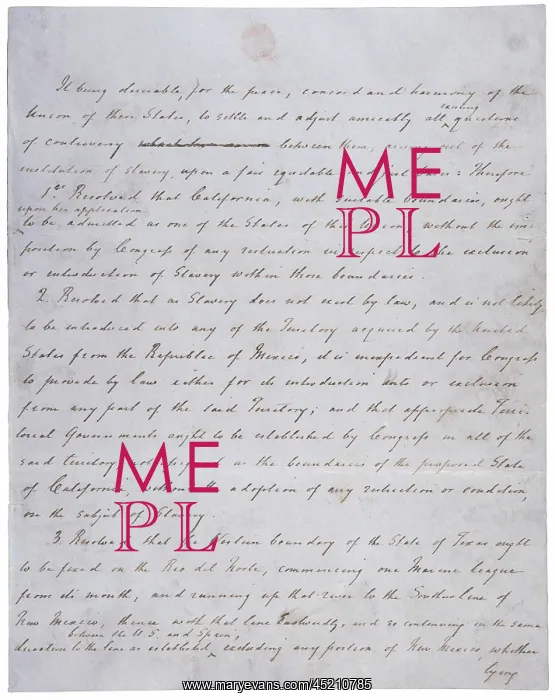 It being desirable, for the peace, concord and harmony of the
Union of these States, to settle and adjust amicably all existing questions
of controversy between them, arising out of the
institution of slavery, upon a fair equitable and just basis: Therefore
1st Resolved that California, with suitable boundaries, ought
upon her application
to be admitted as one of the States of this Union, without the im
position by Congress of any restriction in respect to the exclusion
or introduction of Slavery within those boundaries.
2 Resolved that as Slavery does not exist by law, and is not likely
to be introduced into any of the Territory acquired by the United
States from the Republic of Mexico, it is inexpedient for Congress
to provide by law either for its introduction into or exclusion
from any part of the said Territory; and that appropriate Terri
torial Governments ought to be established by Congress in all of the
said territory, not as the boundaries of the proposed State
of California, without the adoption of any restriction or condition
on the subject of Slavery.
3 Resolved that the Western boundary of the State of Texas ought
to be fixed on the Rio del Norte, commencing one Marine league
from its mouth, and running up that river to the Southern line of
New Mexico, thence with that line Eastwardly, and so continuing in the same
between the U.S. and Spain,
direction to the line as established, excluding any portion of New Mexico, whether
lying
ME
PL
ME
PL
www.maryevans.com/45210785